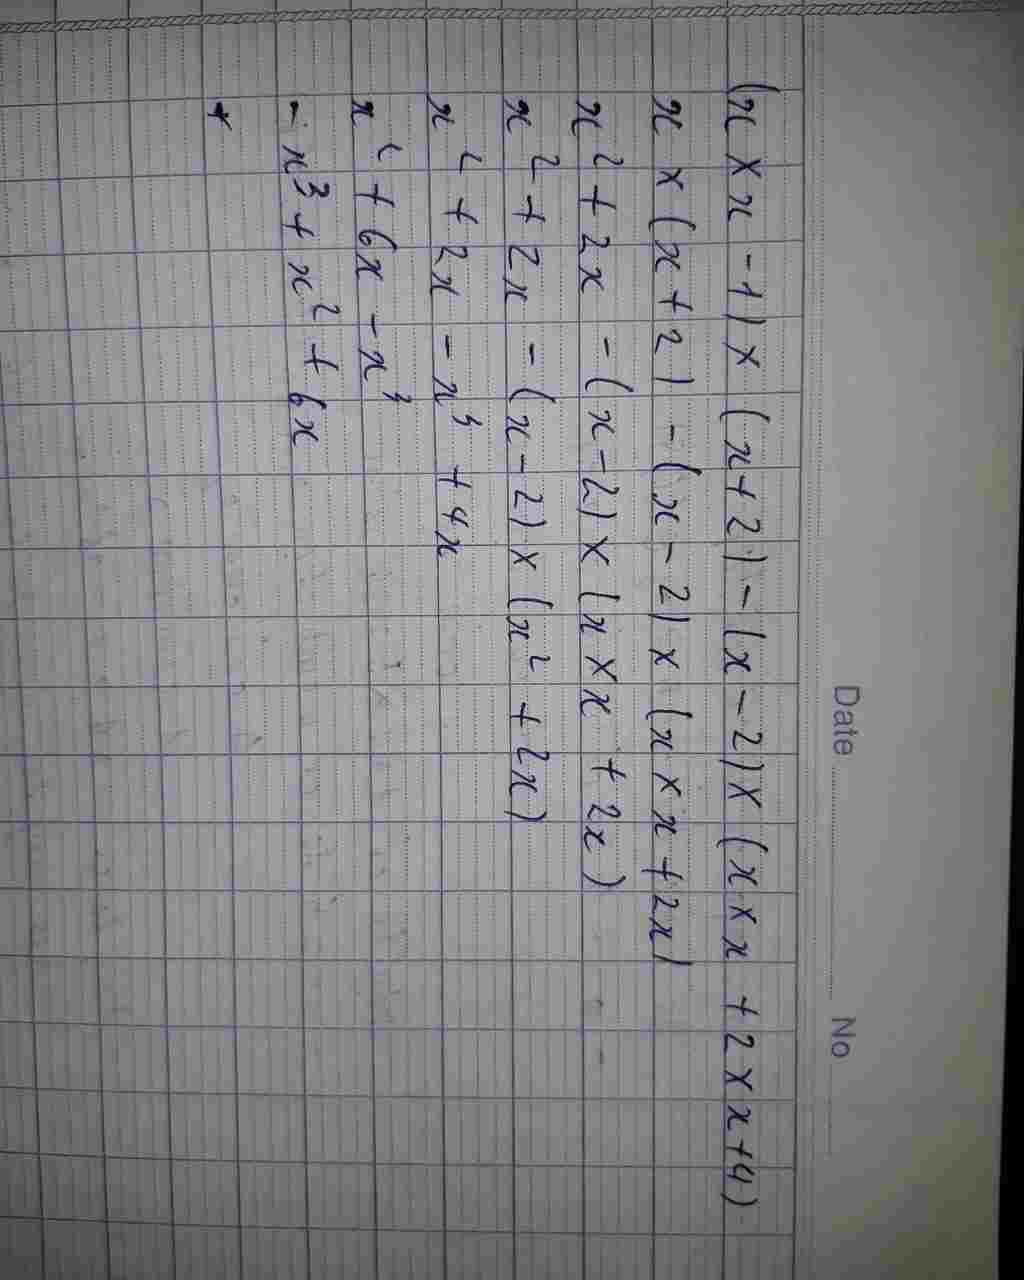 Date No
(x × x - 1) × (x + 2) - (x - 2) × (x × x + 2 × x + 4)
x × (x + 2) - (x - 2) × (x × x + 2x)
x² + 2x - (x - 2) × (x × x + 2x)
x² + 2x - (x - 2) × (x² + 2x)
x² + 2x - x³ + 4x
x² + 6x - x³
- x³ + x² + 6x
*